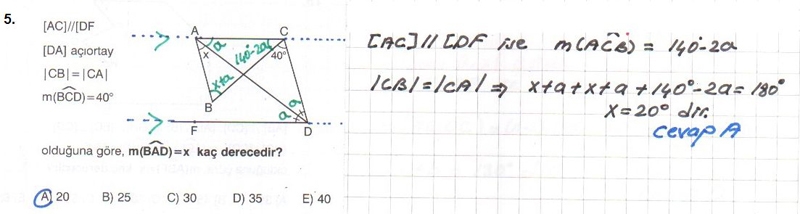 5.
[AC]//[DF
[DA] açıortay
|CB|=|CA|
m(BCD)=40°
A
C
a
140°-2a
40°
x
x+a
B
a
a
F
D
olduğuna göre, m(BAD)=x kaç derecedir?
A) 20 B) 25 C) 30 D) 35 E) 40
[AC]//[DF ise m(ACB) = 140°-2a
|CB|=|CA| ⇒ x+a+x+a+140°-2a=180°
x=20° dir.
Cevap A